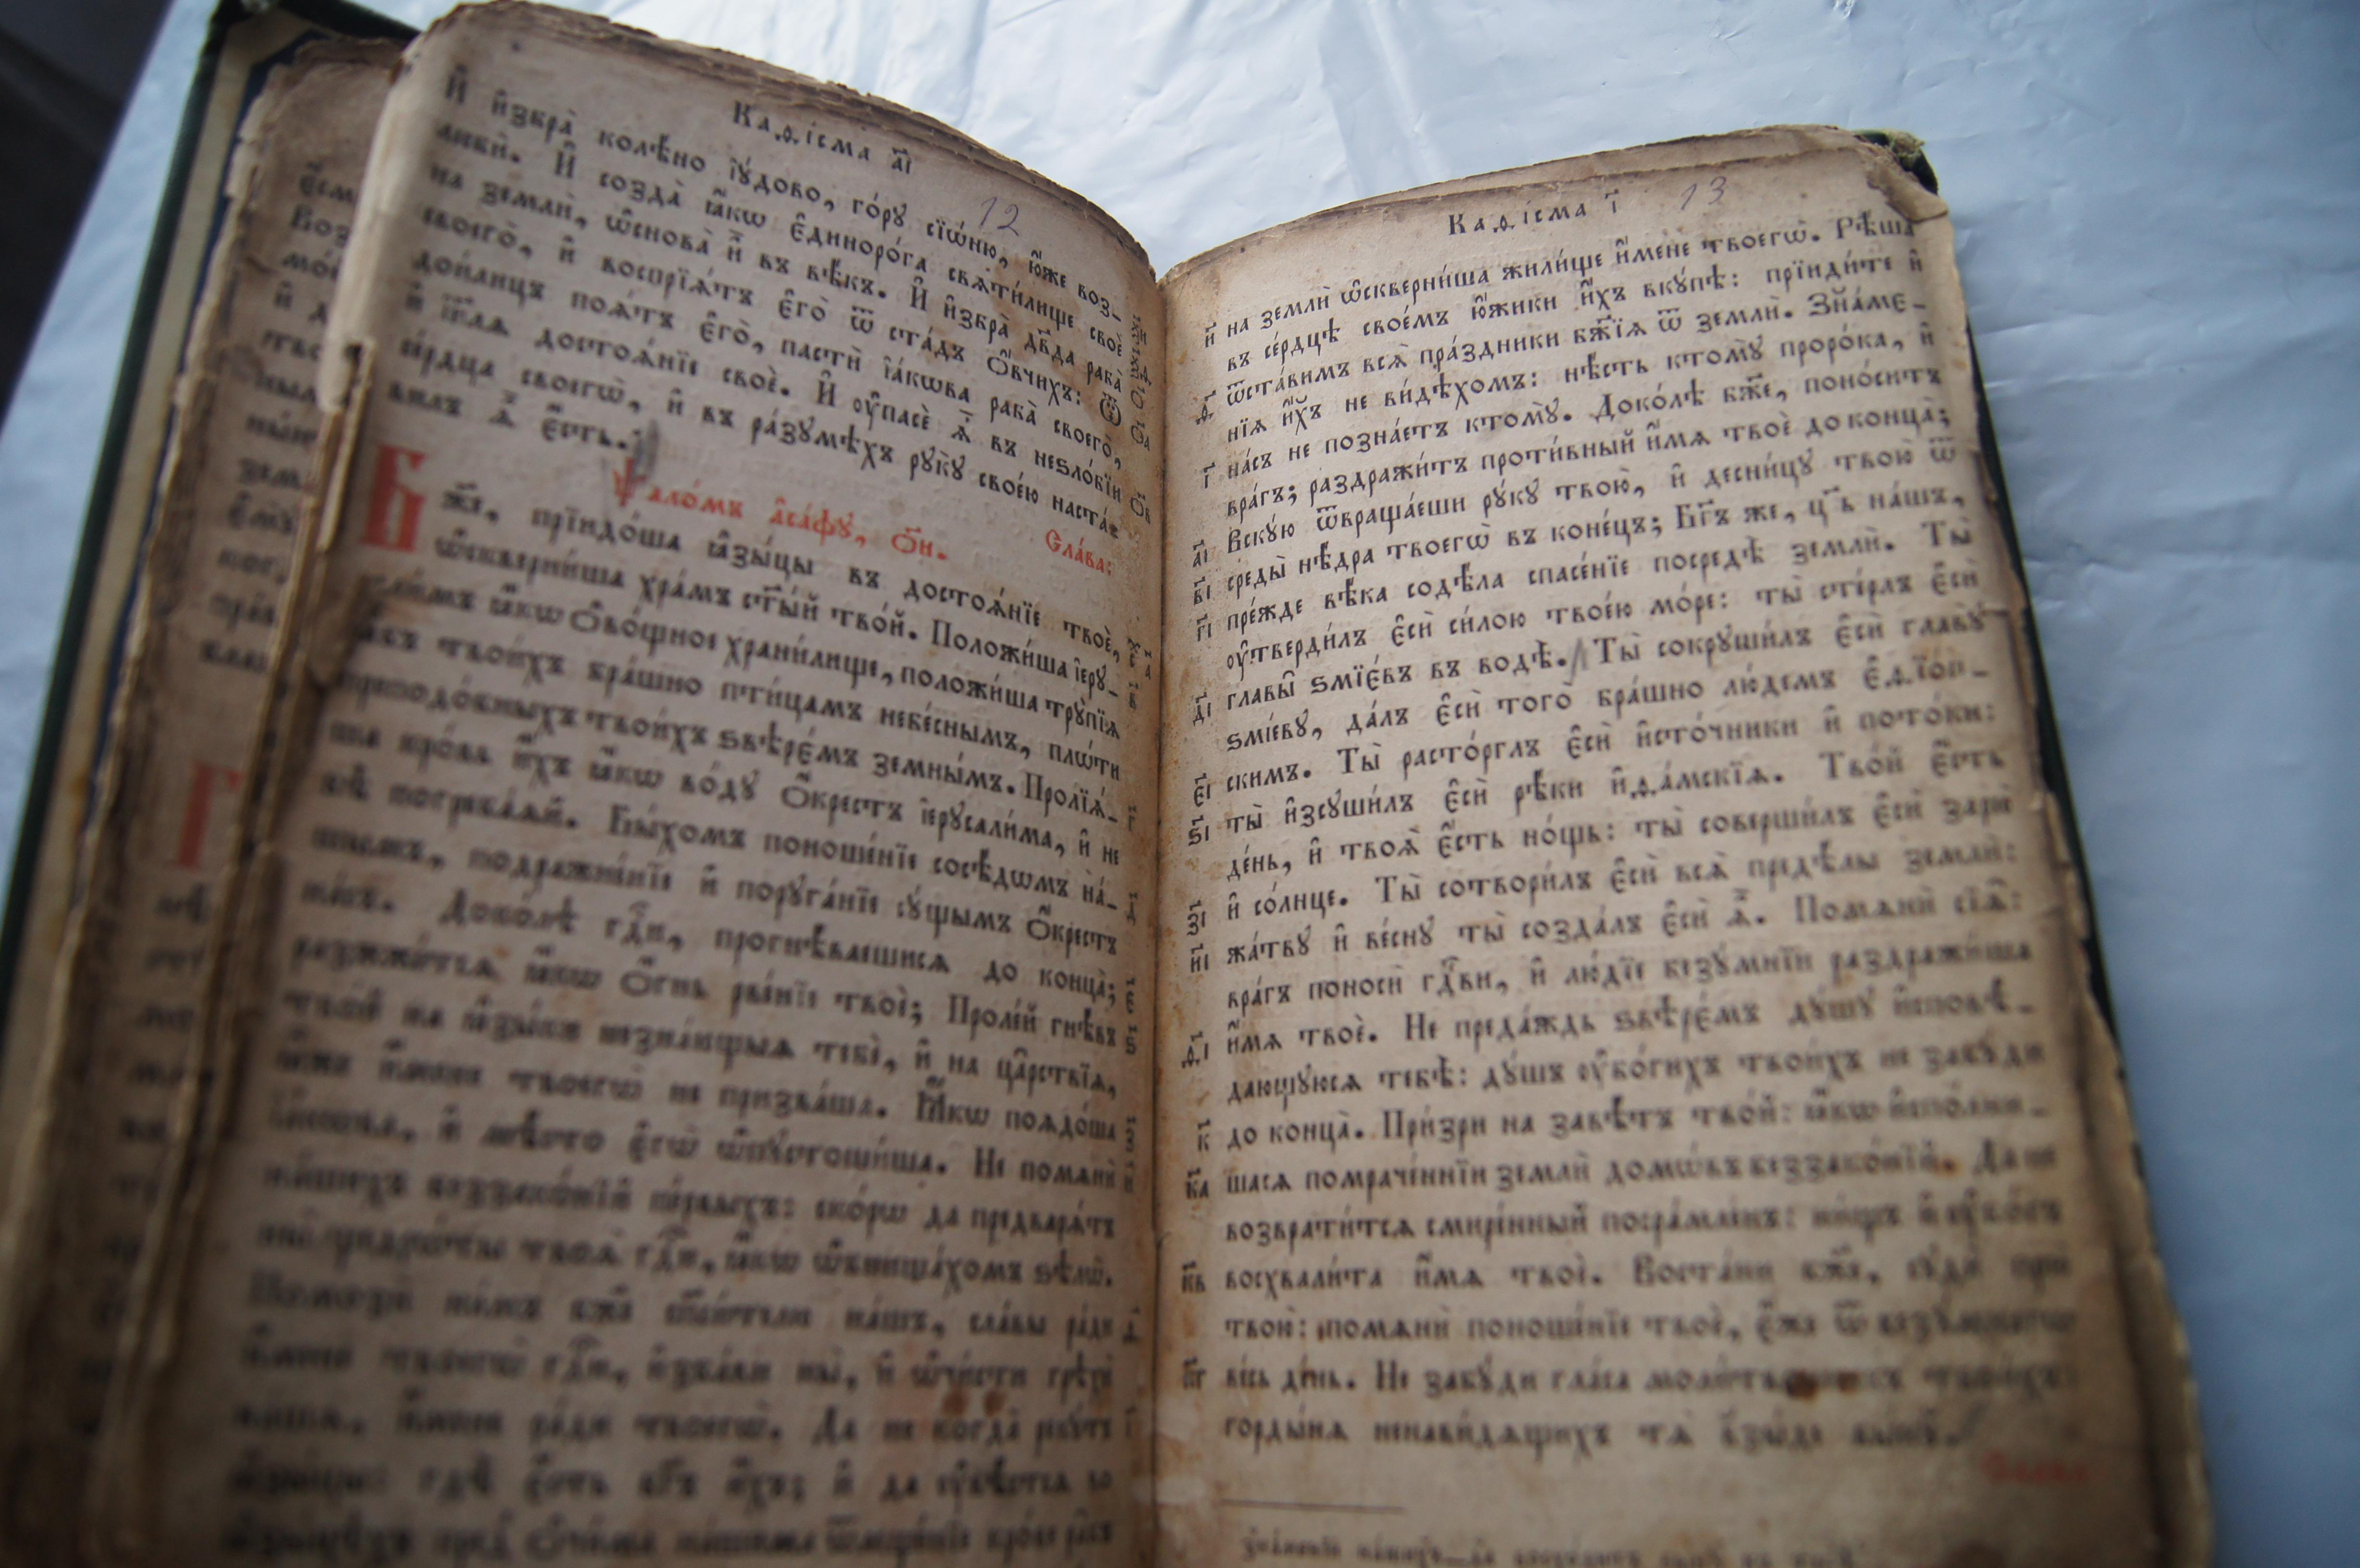 Каѳісма а҃і
12
И҆ и҆збра̀ колѣ́но і҆ꙋ́дово, го́рꙋ сїѡ́ню, ю҆́же воз-
любѝ. И҆ созда̀ ꙗ҆́кѡ є҆диноро́га свѧти́лище своѐ
на землѝ, ѡ҆снова̀ и҆̀ въ вѣ́къ. И҆ и҆збра̀ дв҃да раба̀
своего̀, и҆ воспрїѧ́тъ є҆го̀ ѿ ста́дъ ѻ҆́вчихъ: Ѿ
дои́лицъ поѧ́тъ є҆го̀, пастѝ і҆а́кѡва раба̀ своего̀,
и҆ і҆и҃лѧ достоѧ́нїе своѐ. И҆ ᲂу҆пасѐ ѧ҆̀ въ неѕло́бїи
се́рдца своегѡ̀, и҆ въ ра́зꙋмѣхъ рꙋкꙋ̀ свое́ю наста́-
вилъ ѧ҆̀ є҆́сть.
Сла́ва:
Ѱало́мъ а҆са́фꙋ, о҃и.
Бж҃е, прїидо́ша ꙗ҆зы́цы въ достоѧ́нїе твоѐ,
ѡ҆скверни́ша хра́мъ ст҃ы́й тво́й. Положи́ша і҆ерꙋ-
сали́мъ ꙗ҆́кѡ ѻ҆во́щное храни́лище, положи́ша трꙋ́пїѧ
ра̑бъ твои́хъ бра́шно пти́цамъ небє́снымъ, плѡ́ти
преподо́бныхъ твои́хъ ѕвѣрє́мъ земны̑мъ. Пролїѧ́-
ша кро́вь и҆́хъ ꙗ҆́кѡ во́дꙋ ѻ҆́крестъ і҆ерꙋсали́ма, и҆ не
бѣ̀ погреба́ѧй. Бы́хомъ поноше́нїе сосѣ́дѡмъ на́-
шымъ, подражне́нїе и҆ порꙋга́нїе сꙋ́щымъ ѻ҆́крестъ
на́съ. Доко́лѣ гдⷭ҇и, прогнѣ́ваешисѧ до конца̀;
разжже́тсѧ ꙗ҆́кѡ ѻ҆́гнь рве́нїе твоѐ; Проле́й гнѣ́въ
тво́й на ꙗ҆зы́ки незна́ющыѧ тебѐ, и҆ на ца̑рствїѧ,
ꙗ҆̀же и҆́мене твоегѡ̀ не призва́ша. Ꙗ҆́кѡ поѧдо́ша
і҆а́кѡва, и҆ мѣ́сто є҆гѡ̀ ѡ҆пꙋстоши́ша. Не помѧнѝ
на́шихъ беззако́нїй пе́рвыхъ: ско́рѡ да предварѧ́тъ
ны̀ щедрѡ́ты твоѧ̑ гдⷭ҇и, ꙗ҆́кѡ ѡ҆бнища́хомъ ѕѣлѡ̀.
Помозѝ на́мъ бж҃е сп҃си́телю на́шъ, сла́вы ра́ди
и҆́мене твоегѡ̀ гдⷭ҇и, и҆зба́ви ны̀, и҆ ѡ҆чи́сти грѣхѝ
на́шѧ, и҆́мене ра́ди твоегѡ̀. Да не когда̀ рекꙋ́тъ
ꙗ҆зы́цы: гдѣ̀ є҆́сть бг҃ъ и҆́хъ; и҆ да ᲂу҆вѣ́стсѧ во
Каѳісма і҃
13
на землѝ ѡ҆скверни́ша жили́ще и҆́мене твоегѡ̀. Рѣ́ша
и҃ въ се́рдцѣ свое́мъ ю҆́жики и҆́хъ вкꙋ́пѣ: прїиди́те и҆
ѿста́вимъ всѧ̑ пра́здники бж҃їѧ ѿ землѝ. Зна́ме-
ѳ҃ нїѧ и҆́хъ не ви́дѣхомъ: нѣ́сть ктомꙋ̀ проро́ка, и҆
на́съ не позна́етъ ктомꙋ̀. Доко́лѣ бж҃е, поно́ситъ
і҃ вра́гъ; раздражи́тъ проти́вный и҆́мѧ твоѐ до конца̀;
Вскꙋ́ю ѿвраща́еши рꙋ́кꙋ твою̀, и҆ десни́цꙋ твою̀ ѿ
а҃і среды̀ нѣ́дра твоегѡ̀ въ коне́цъ; Бг҃ъ же, цр҃ь на́шъ,
в҃і пре́жде вѣ́ка содѣ́ла спасе́нїе посредѣ̀ землѝ. Ты̀
г҃і ᲂу҆тверди́лъ є҆сѝ си́лою твое́ю мо́ре: ты̀ сте́рлъ є҆сѝ
главы̑ ѕмїє́въ въ водѣ̀. Ты̀ сокрꙋши́лъ є҆сѝ главꙋ̀
д҃і ѕмі́евꙋ, да́лъ є҆сѝ того̀ бра́шно лю́демъ є҆ѳїо́п-
скимъ. Ты̀ расто́рглъ є҆сѝ и҆сто́чники и҆ пото́ки:
є҃і ты̀ и҆зсꙋши́лъ є҆сѝ рѣ́ки и҆ѳа́мскїѧ. Тво́й є҆́сть
ѕ҃і де́нь, и҆ твоѧ̀ є҆́сть но́щь: ты̀ соверши́лъ є҆сѝ зарю̀
и҆ со́лнце. Ты̀ сотвори́лъ є҆сѝ всѧ̑ предѣ́лы землѝ:
з҃і жа́твꙋ и҆ ве́снꙋ ты̀ созда́лъ є҆сѝ ѧ҆̀. Помѧнѝ сїѧ̑:
и҃і вра́гъ поносѝ гдⷭ҇ви, и҆ лю́дїе безꙋ́мнїи раздражи́ша
и҆́мѧ твоѐ. Не преда́ждь ѕвѣрє́мъ дꙋ́шꙋ и҆сповѣ́-
ѳ҃і дающꙋюсѧ тебѣ̀: дꙋ́шъ ᲂу҆бо́гихъ твои́хъ не забꙋ́ди
к҃ до конца̀. При́зри на завѣ́тъ тво́й: ꙗ҆́кѡ и҆спо́лни-
к҃а шасѧ помраче́ннїи землѝ домѡ́въ беззако́нїй. Да не
возврати́тсѧ смире́нный посра́мленъ: ни́щъ и҆ ᲂу҆бо́гъ
к҃в восхвали́та и҆́мѧ твоѐ. Воста́ни бж҃е, сꙋдѝ прю̀
твою̀: помѧнѝ поноше́нїе твоѐ, є҆́же ѿ безꙋ́мнагѡ
к҃г ве́сь де́нь. Не забꙋ́ди гла́са моли́твенникъ твои́хъ:
горды́нѧ ненави́дѧщихъ тѧ̀ взы́де вы́нꙋ.
Сла́ва: